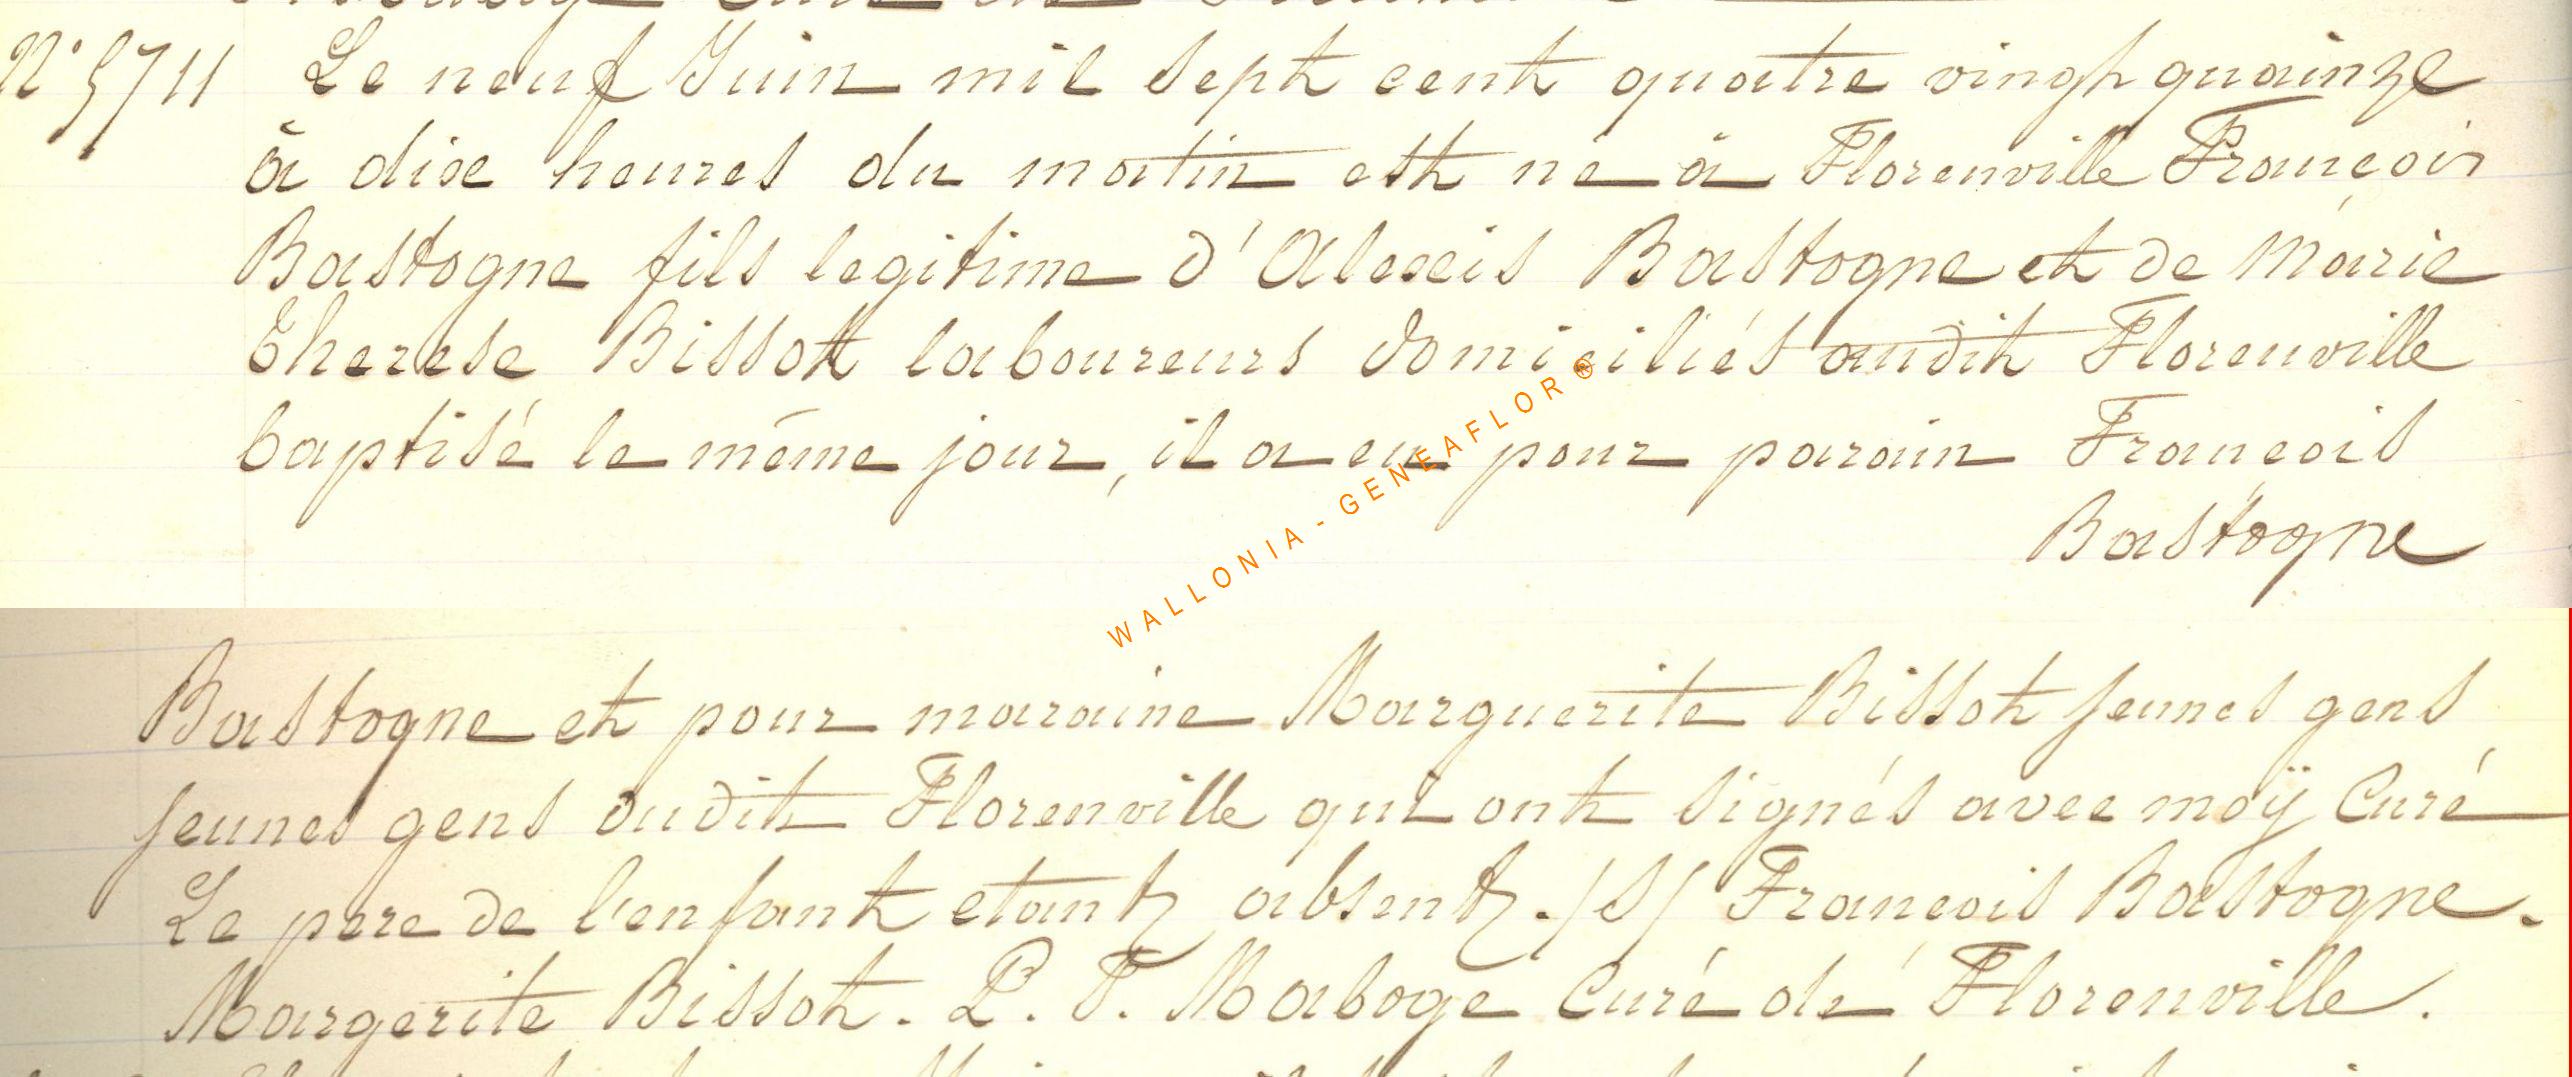 N° 5711 Le neuf Juin mil sept cent quatre vingt quainze
à dixe heures du matin est né à Florenville François
Bastogne fils legitime d'Alexis Bastogne et de Marie
Therese Bissot laboureurs domiciliés audit Florenville
baptisé le même jour, il a eu pour parain François
Bastogne
WALLONIA - GENEAFLOR®
Bastogne et pour maraine Marguerite Bissot jeunes gens
jeunes gens audit Florenville qui ont signés avec moÿ Curé
Le pere de l'enfant etant absent. /S/ François Bastogne.
Margerite Bissot. P. T. Maboge Curé de Florenville.